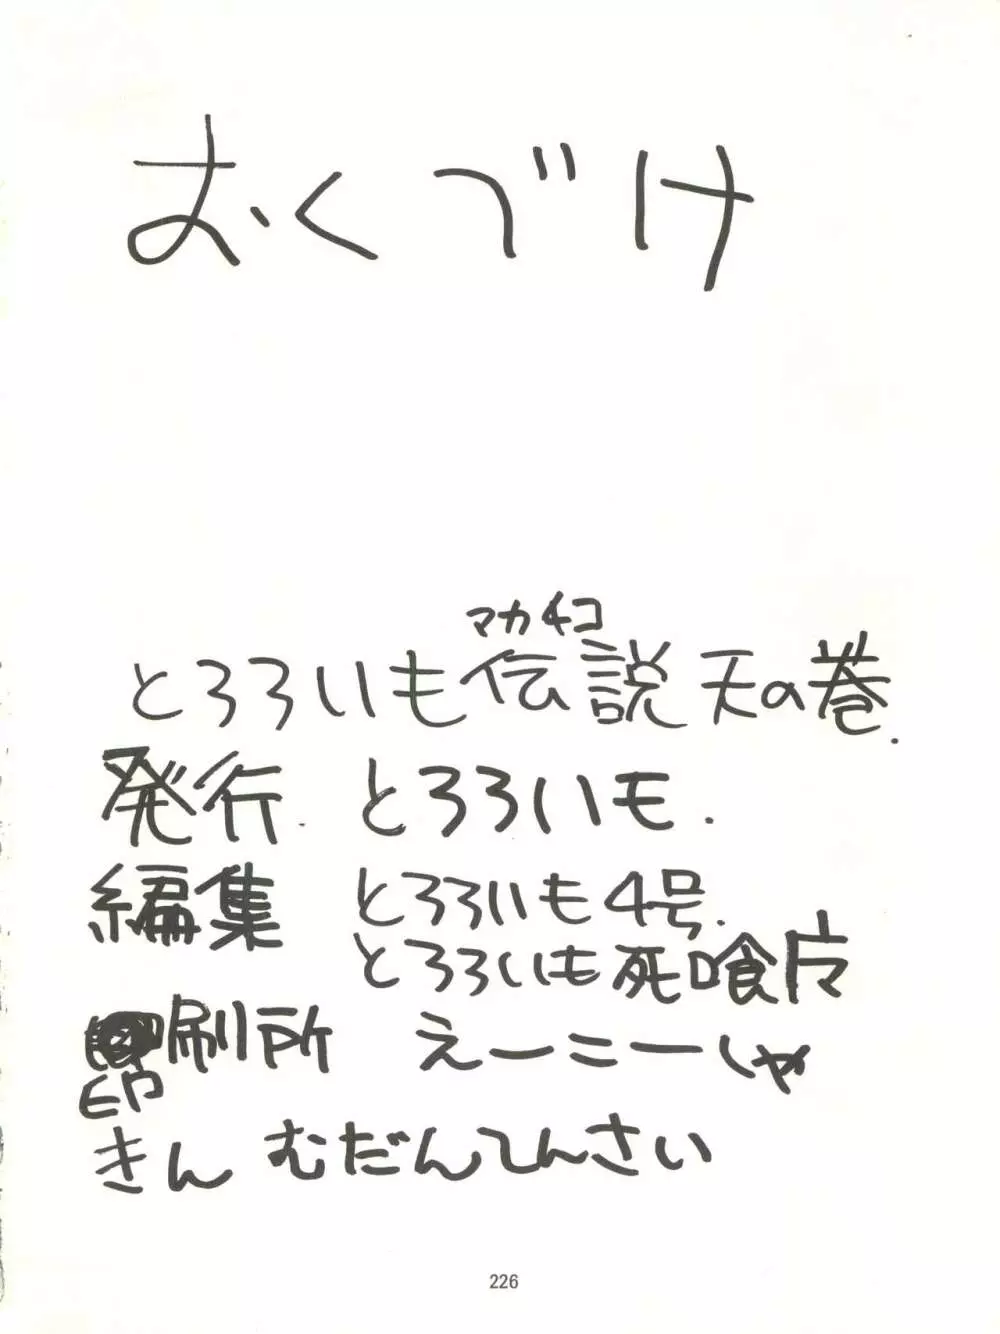 おくづけ
マカチコ
とろろいも伝説天の巻.
発行. とろろいモ.
編集 とろろいも4号.
とろろいも死喰
刷所 えーこーしゃ
印
きん むだんてんさい
226